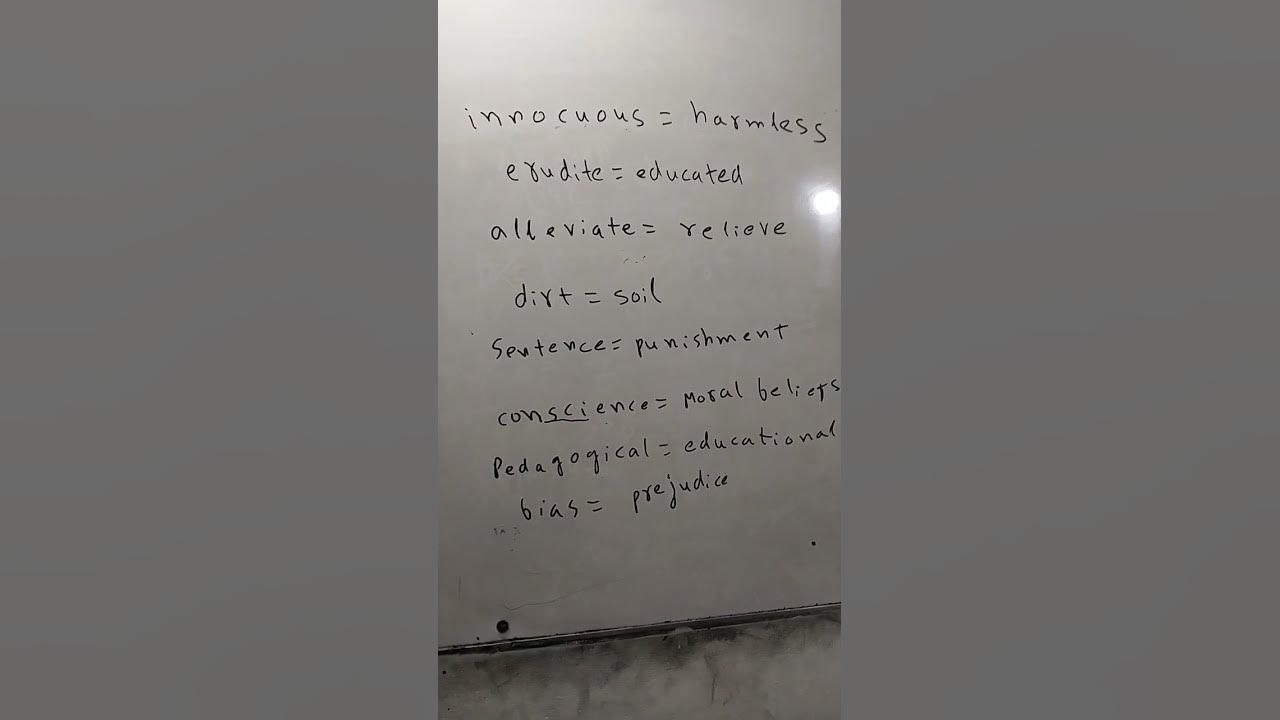 innocuous = harmless
erudite = educated
alleviate = relieve
dirt = soil
Sentence = punishment
conscience = Moral beliefs
Pedagogical = educational
bias = prejudice